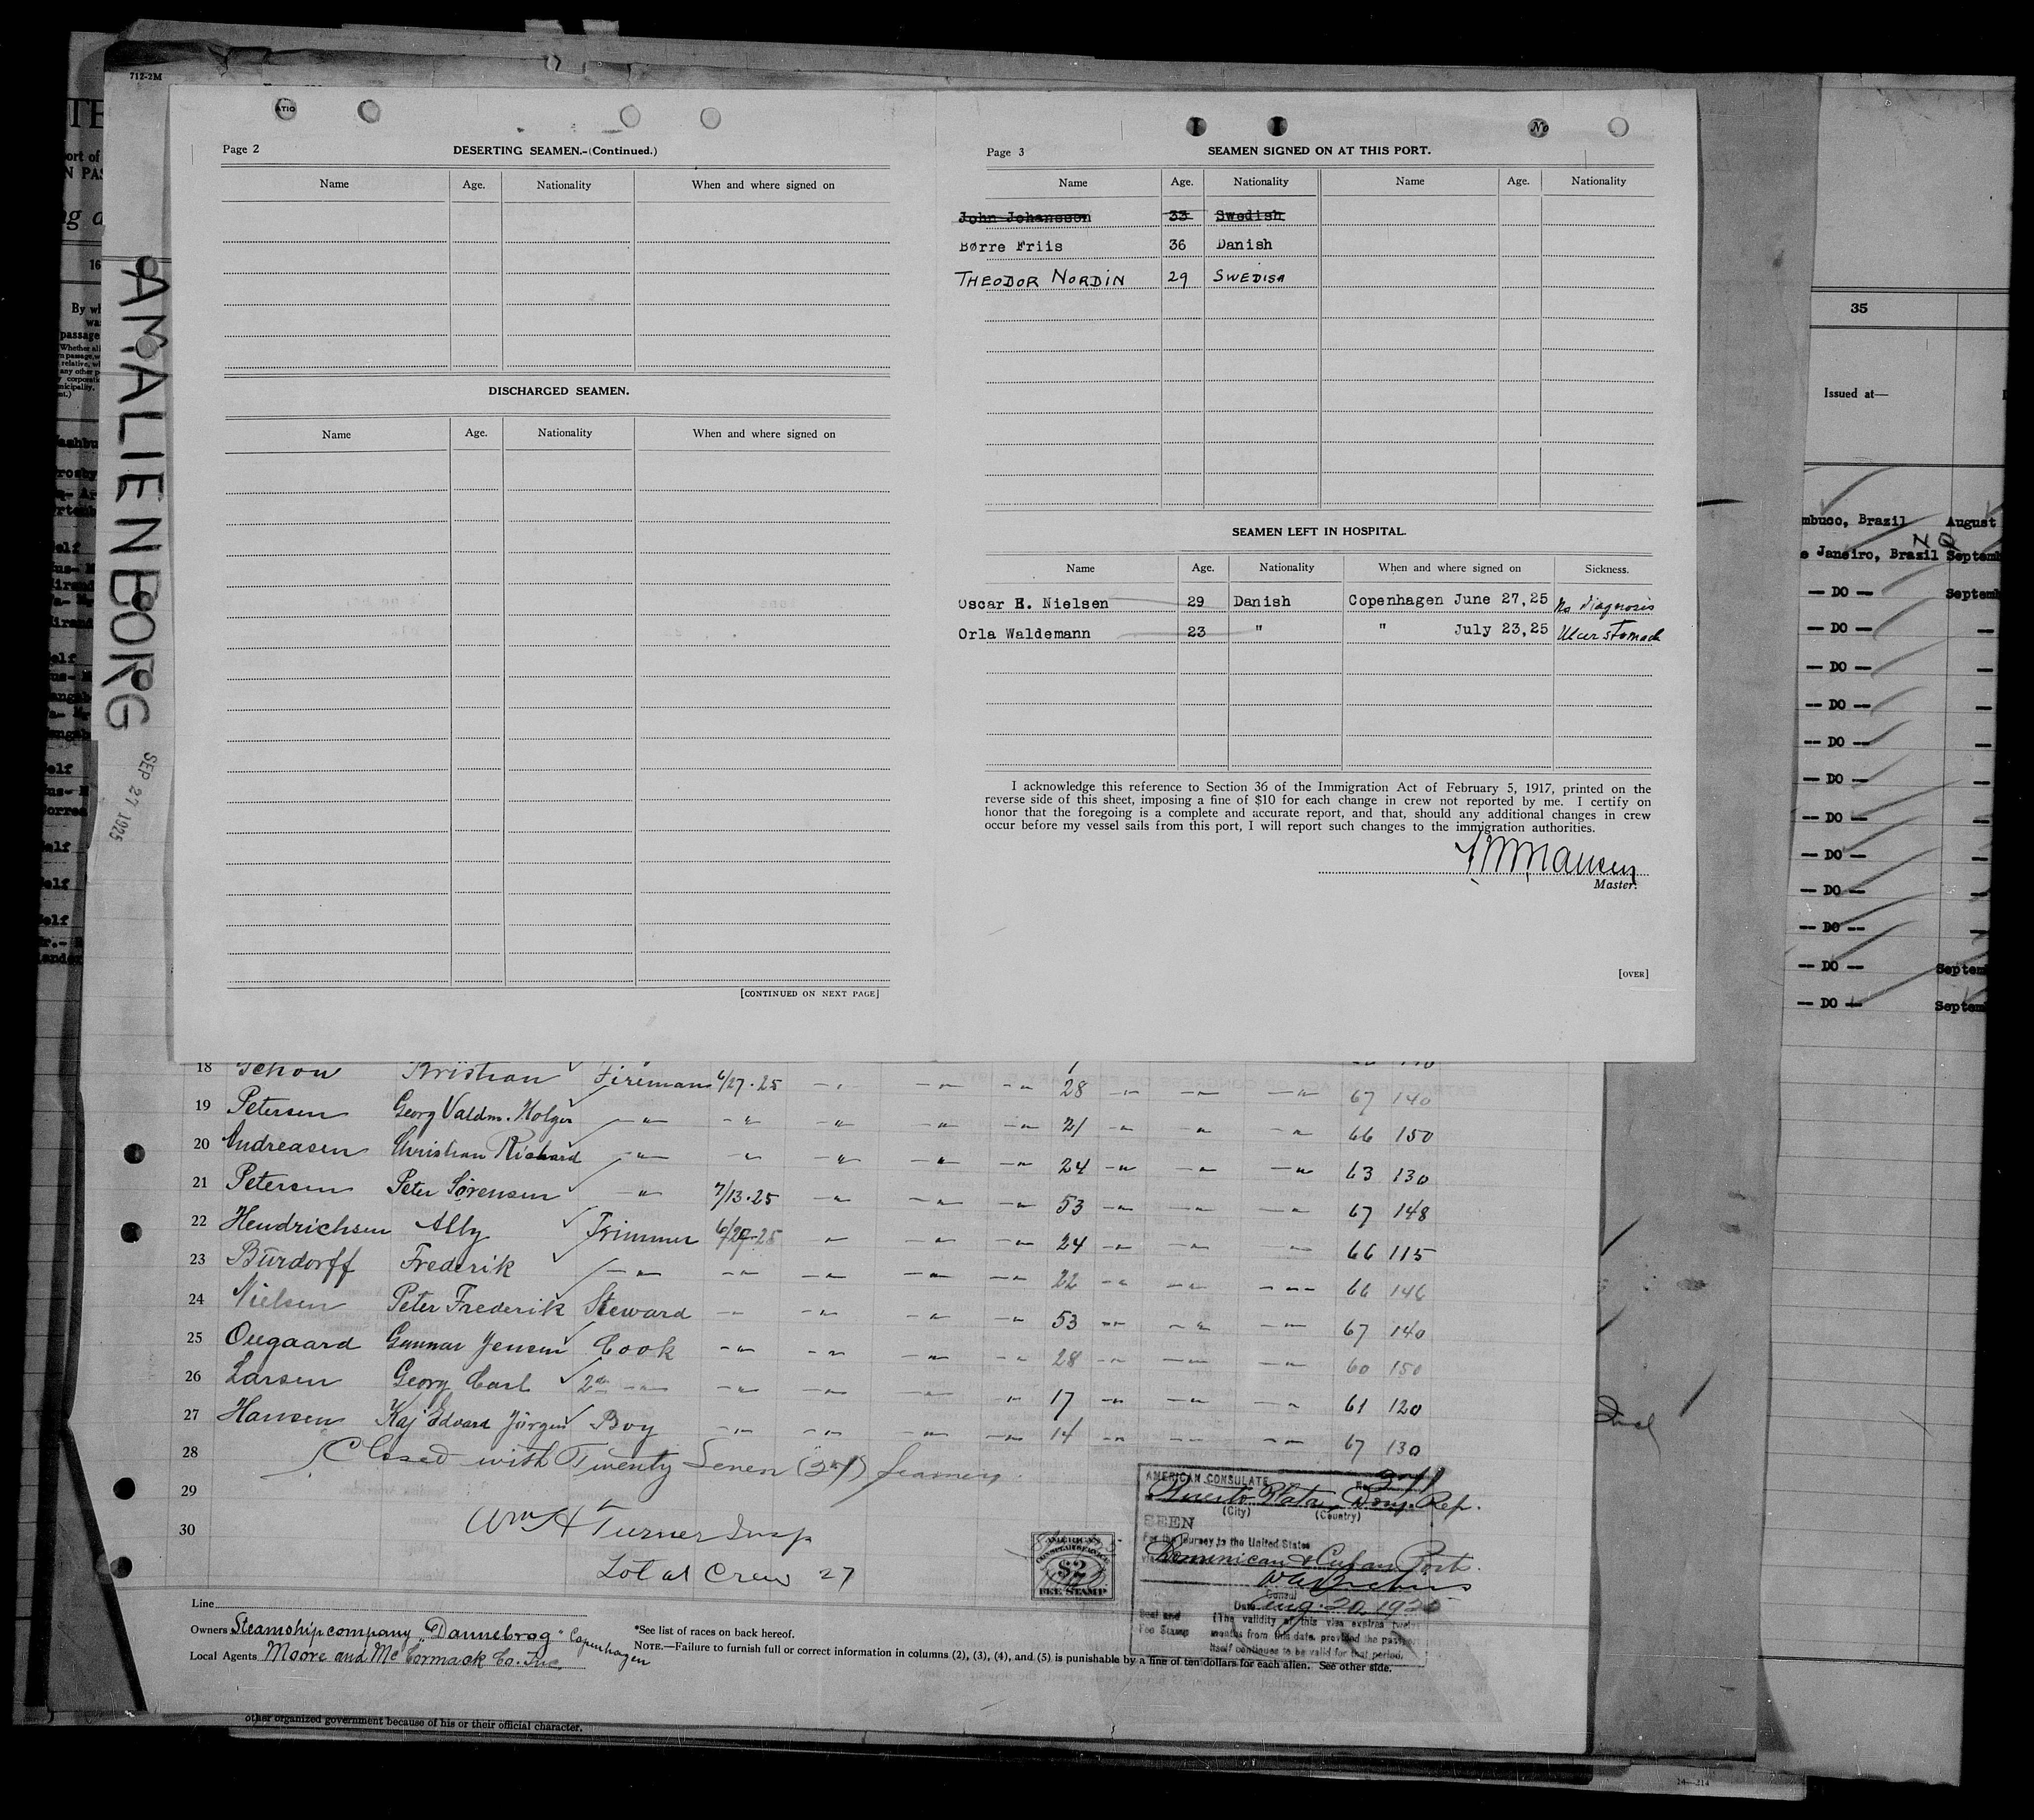 712-2M
AMALIENBORG
SEP 27 1925
Page 2 DESERTING SEAMEN.-(Continued.)
Name Age. Nationality When and where signed on
DISCHARGED SEAMEN.
Name Age. Nationality When and where signed on
[CONTINUED ON NEXT PAGE]
No
Page 3 SEAMEN SIGNED ON AT THIS PORT.
Name Age. Nationality Name Age. Nationality
John Johansson 33 Swedish
Børre Friis 36 Danish
THEODOR NORDIN 29 SWEDISH
SEAMEN LEFT IN HOSPITAL.
Name Age. Nationality When and where signed on Sickness.
Oscar E. Nielsen 29 Danish Copenhagen June 27,25 No diagnosis
Orla Waldemann 23 " " July 23,25 Ulcer stomach
I acknowledge this reference to Section 36 of the Immigration Act of February 5, 1917, printed on the
reverse side of this sheet, imposing a fine of $10 for each change in crew not reported by me. I certify on
honor that the foregoing is a complete and accurate report, and that, should any additional changes in crew
occur before my vessel sails from this port, I will report such changes to the immigration authorities.
Master.
[OVER]
35
Issued at—
mbuco, Brazil August
e Janeiro, Brazil Septemb
— DO — Septemb
— DO — —
— DO — —
— DO — —
— DO — —
— DO — —
— DO — —
— DO — —
— DO — —
— DO — —
— DO — Septem
— DO — Septem
18 Schou Kristian Fireman 6/27-25 28 67 140
19 Petersen Georg Valdm. Holger 21 66 150
20 Andreasen Christian Richard 24 63 130
21 Petersen Peter Sørensen 7/13-25 53 67 148
22 Hendrichsen Alby Trimmer 6/27-25 24 66 115
23 Burdorff Frederik 22 66 146
24 Nielsen Peter Frederik Steward 53 67 140
25 Ougaard Gunnar Jensen Cook 28 60 150
26 Larsen Georg Carl 2de 17 61 120
27 Hansen Kaj Edvard Jürgen Boy 14 67 130
28 Closed with Twenty Seven (27) seamen
29
Wm H Turner Insp
30
Total Crew 27
AMERICAN CONSULATE
Puerto Plata, Dom. Rep.
(City) (Country)
SEEN
For the journey to the United States
via Dominican & Cuban Ports.
Consul
Date Aug. 20, 1925
Seal and (The validity of this visa expires twelve
Fee Stamp months from this date, provided the passport
itself continues to be valid for that period.
AMERICAN
CONSULAR SERVICE
$2
FEE STAMP
Line
Owners Steamshipcompany "Dannebrog" Copenhagen
Local Agents Moore and McCormack Co. Inc
*See list of races on back hereof.
NOTE.—Failure to furnish full or correct information in columns (2), (3), (4), and (5) is punishable by a fine of ten dollars for each alien. See other side.
other organized government because of his or their official character.